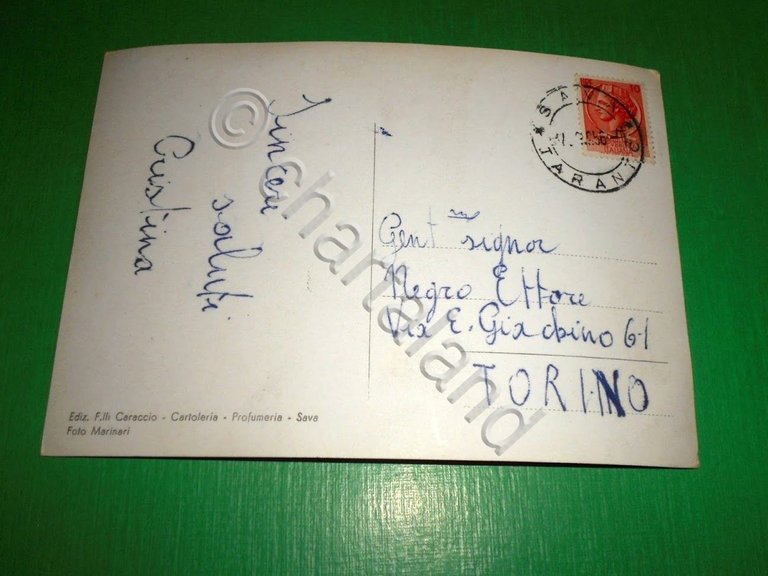 Sinceri
saluti
Cristina
SAVA
TARANTO
10
Gent.mo signor
Negro Ettore
Via E. Giachino 61
TORINO
Ediz. F.lli Caraccio - Cartoleria - Profumeria - Sava
Foto Marinari
© chartaland